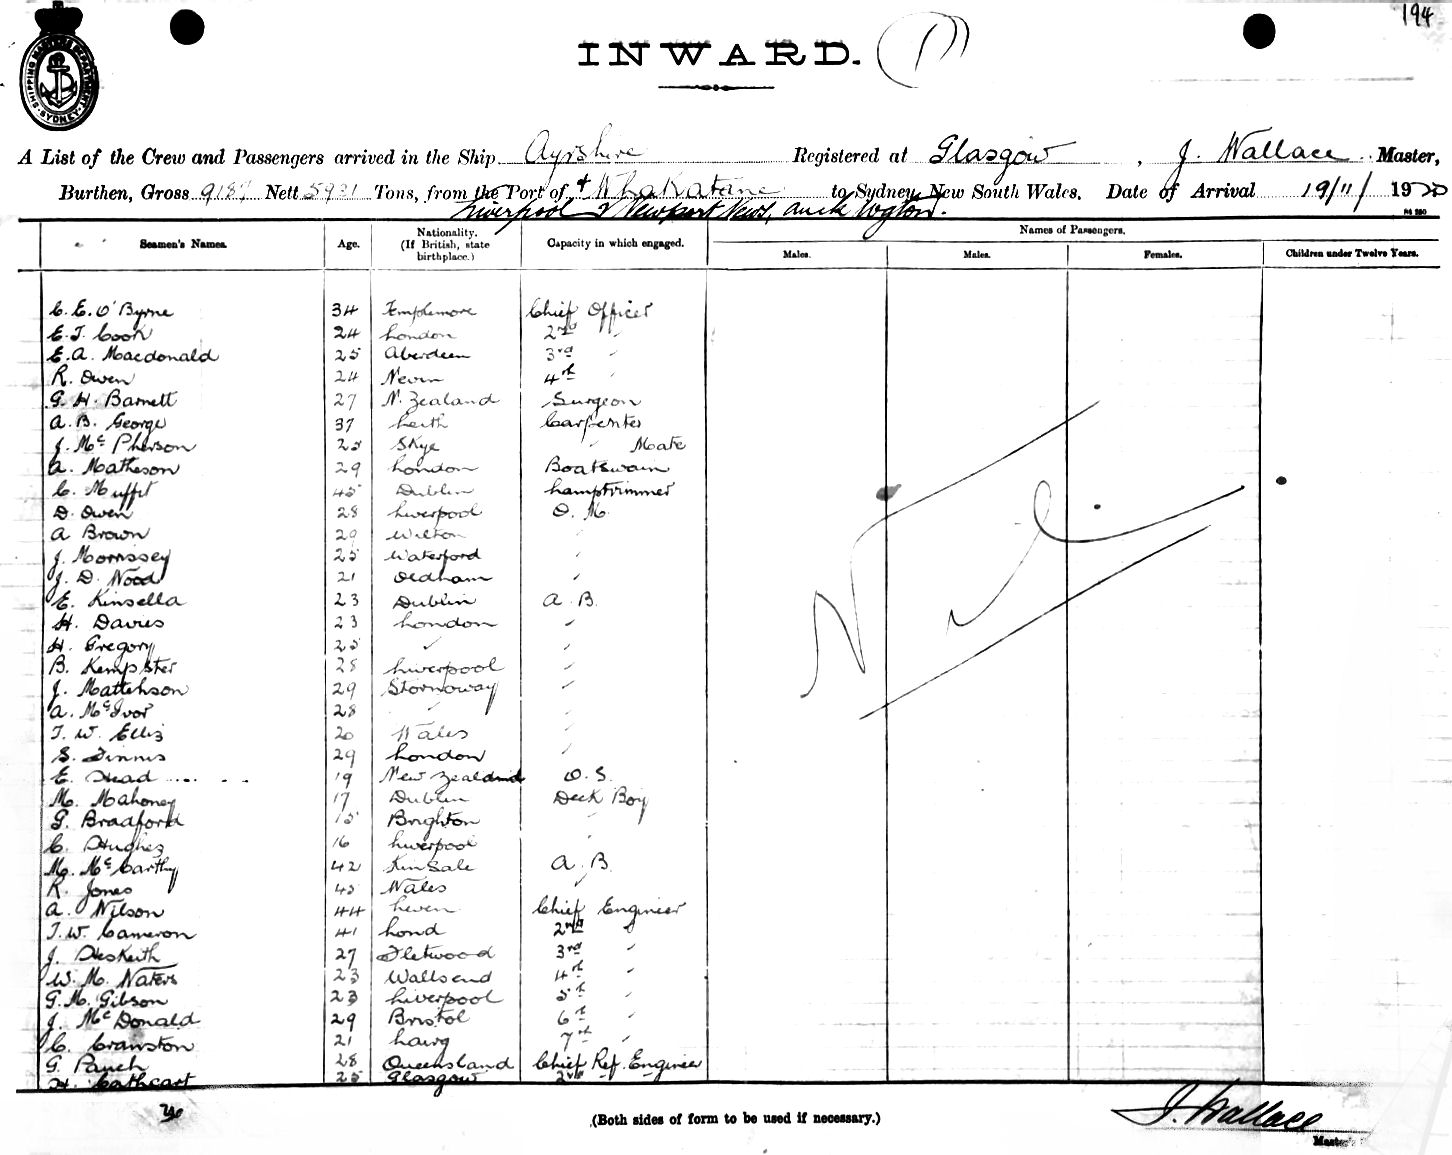 194
INWARD.
SHIPPING MASTER'S DEPARTMENT. SYDNEY
A List of the Crew and Passengers arrived in the Ship Ayrshire Registered at Glasgow, J. Wallace Master,
Burthen, Gross 9187 Nett 5921 Tons, from the Port of + Whakatane to Sydney, New South Wales, Date of Arrival 19/11/1920
Liverpool & Newport News, Auck Wgton.
Seamen's Names. Age. Nationality. (If British, state birthplace.) Capacity in which engaged. Names of Passengers.
Males. Males. Females. Children under Twelve Years.
C. E. O'Byrne 34 Templemore Chief Officer
E. J. Cook 24 London 2nd "
E. A. Macdonald 25 Aberdeen 3rd "
R. Owen 24 Nevin 4th "
G. H. Barnett 27 N. Zealand Surgeon
A. B. George 37 Leith Carpenter
J. McPherson 25 Skye " Mate
A. Matheson 29 London Boatswain
C. Muffit 45 Dublin Lamptrimmer
D. Owen 28 Liverpool Q. M.
A Brown 29 Wilton "
J. Morrissey 25 Waterford "
J. D. Wood 21 Oldham "
E. Kinsella 23 Dublin A. B.
H. Davies 23 London "
H. Gregory 25 " "
B. Kempster 28 Liverpool "
J. Mattehson 29 Stornoway "
A. McIvor 28 " "
T. W. Ellis 20 Wales "
S. Finnis 29 London "
E. Head 19 New Zealand O. S.
M. Mahoney 17 Dublin Deck Boy
G. Bradford 15 Brighton "
C. Hughes 16 Liverpool "
M. McCarthy 42 Kinsale A. B.
R. Jones 45 Wales
A. Wilson 44 Leven Chief Engineer
T. W. Cameron 41 Lond 2nd "
J. Hesketh 27 Fleetwood 3rd "
W. M. Waters 23 Wallsend 4th "
G. M. Gibson 23 Liverpool 5th "
J. McDonald 29 Bristol 6th "
C. Cranston 21 7th "
G. 28 Queensland Chief Ref. Engineer
H. Cathcart 25 Glasgow 2nd "
Nil
(Both sides of form to be used if necessary.)
J. Wallace
Master